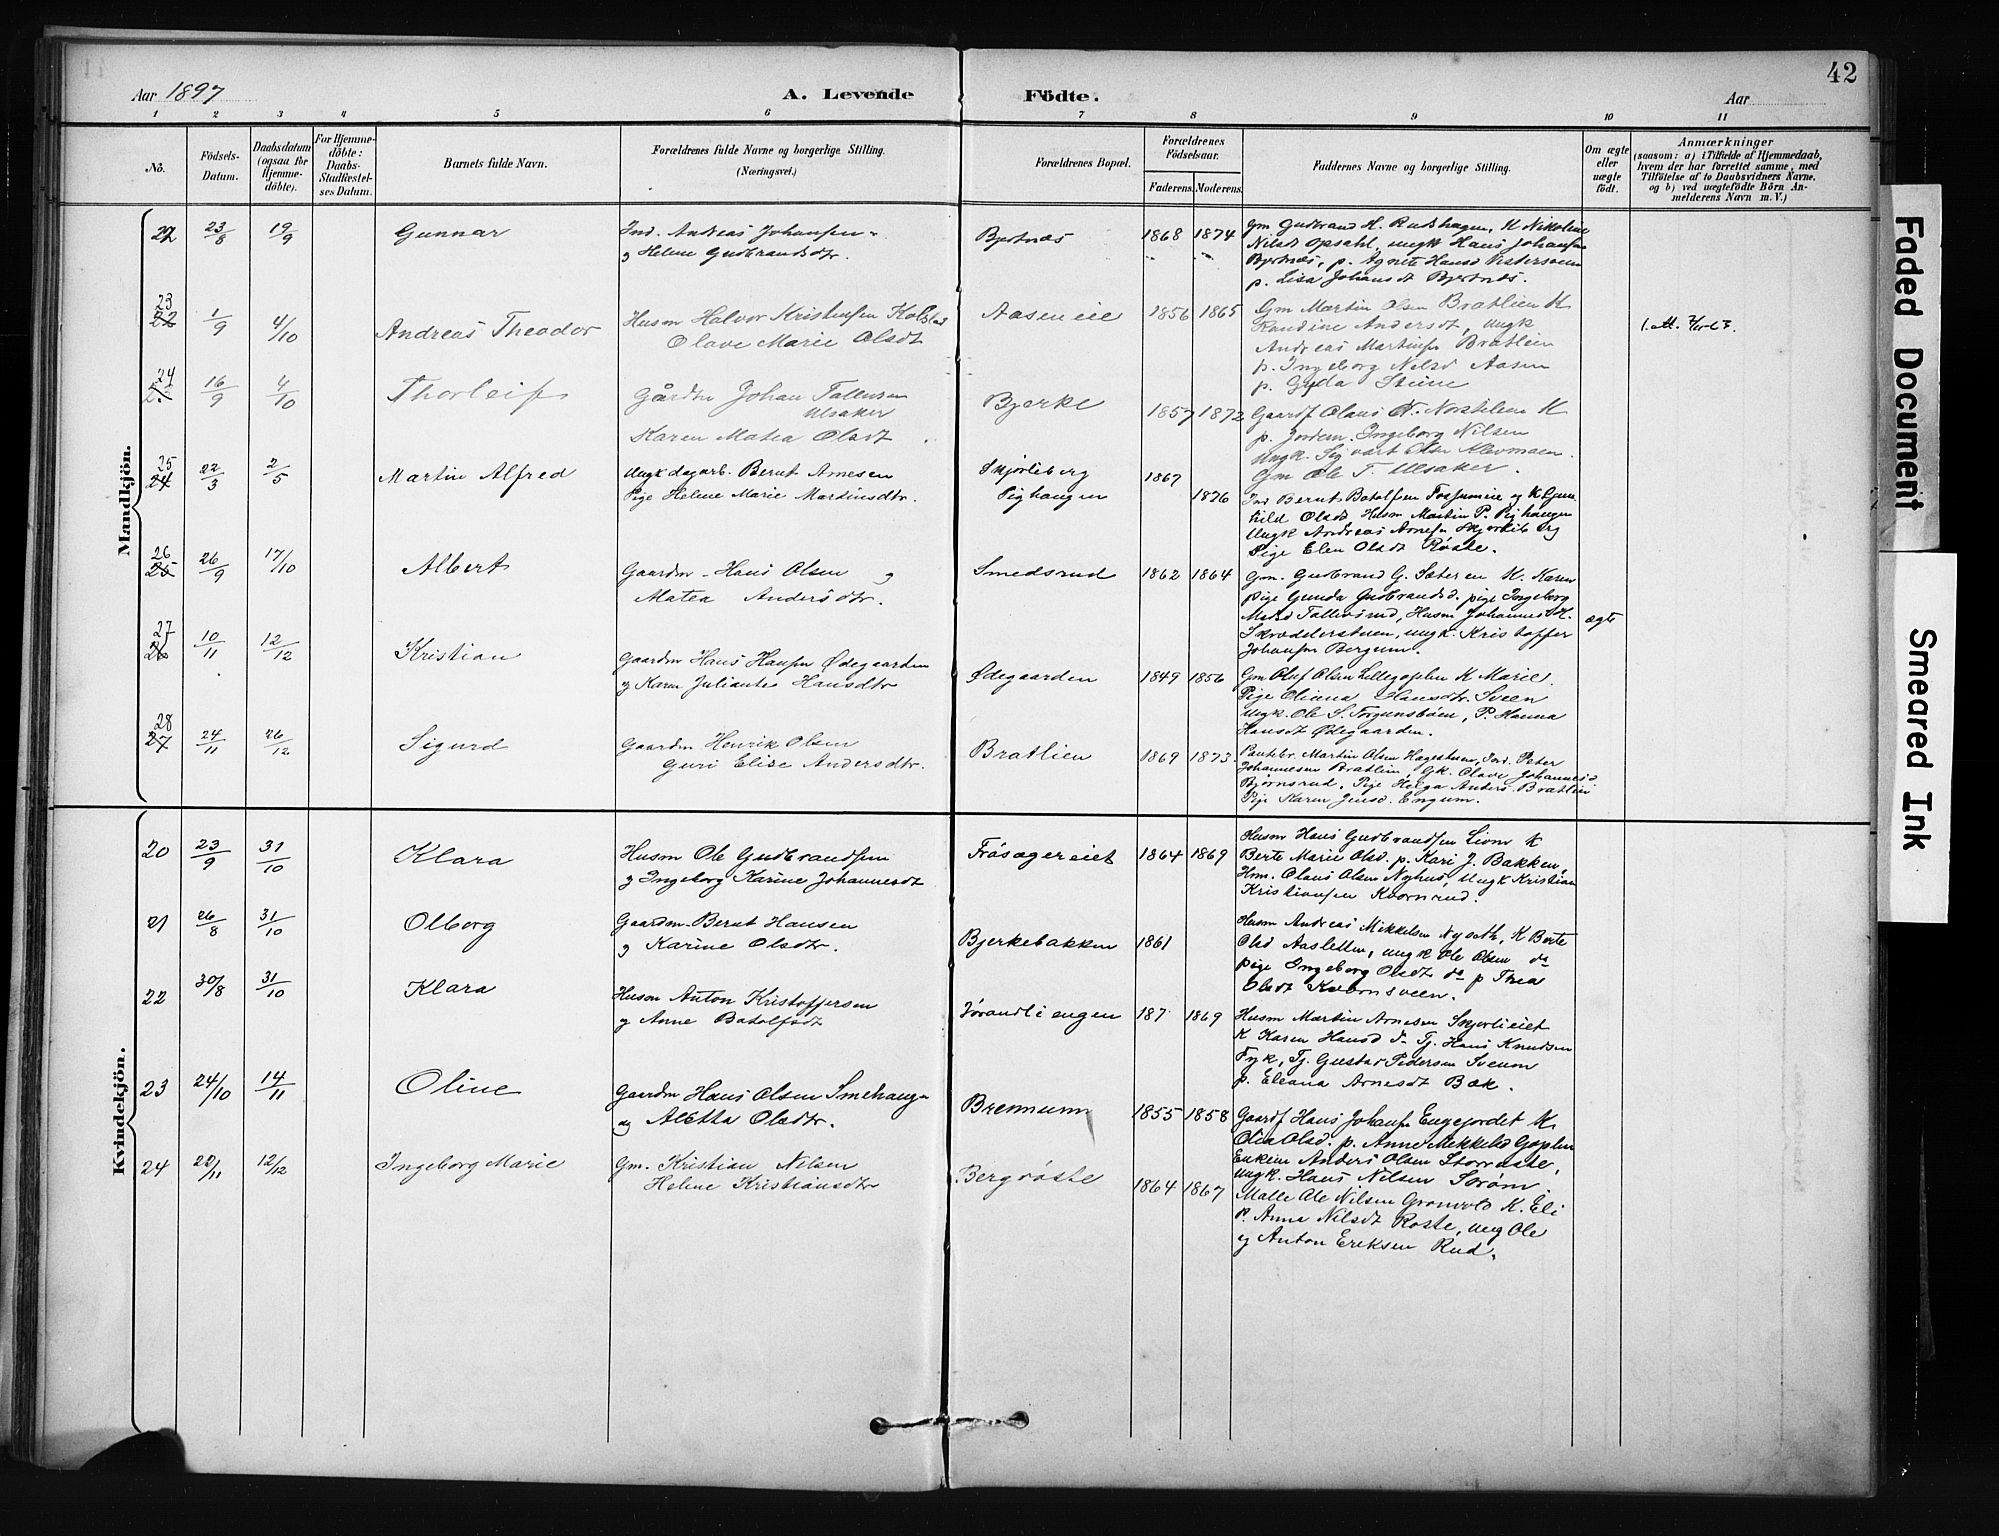 42
Aar 1897
A. Levende Födte.
Aar
1 2 3 4 5 6 7 8 9 10 11
No.
Födsels-Datum.
Daabsdatum (ogsaa for Hjemme-döbte).
For Hjemme-döbte: Daabs-Stadfæstel-ses Datum.
Barnets fulde Navn.
Forældrenes fulde Navne og borgerlige Stilling.
(Næringsvei.)
Forældrenes Bopæl.
Forældrenes Födselsaar.
Faderens. Moderens.
Faddernes Navne og borgerlige Stilling.
Om ægte eller uægte født.
Anmærkninger
(saasom: a) i Tilfælde af Hjemmedaab, hvem der har forrettet samme, med Tilföielse af to Daabsvidners Navne, og b) ved uægtefödte Börn An-melderens Navn m. V.)
Mandkjön.
22 23/8 19/9 Gunnar Ind. Andreas Johansen
og Helene Gudbrandsdtr. Bjertnæs 1868 1874
Gm Gudbrand H. Rudshagen, K Nikoline
Nilsd Opsahl, ungk Hans Johansen
Bjertnæs, p. Agnete Hansd
p. Lisa Johansdt Bjertnæs.
23 1/9 4/10 Andreas Theodor Husm Halvor Kristensen
Olave Marie Olsdt Aaseneie 1856 1865
Gm Martin Olsen Bratlien K
Randine Andersdt, ungk
Andreas Martinsen Bratlien
p. Ingeborg Nilsd Aasen
p. Gyda Steine
24 16/9 4/10 Thorleif Gårdbr Johan Tollensen
Ulsaker
Karen Matea Olsdt Bjerke 1857 1872
Gaardf Olaus N. K
p. Jordem. Ingeborg Nilsen
Ungk. Sigvart Olsen
Gm Ole T Ulsaker.
25 24 22/3 2/5 Martin Alfred Ungk dagarb. Bernt Arnesen
Pige Helene Marie Martinsdtr. Skjørliberg
Pighaugen 1867
1876
Ind Bernt Batolfsen Fossumeie og K Gun-
hild Olsdt Husm Martin P. Pighaugen
Ungk Andreas Arnesen Skjørliberg
Pige Elen Olsdt Røste.
26 25 26/9 17/10 Albert Gaardm Hans Olsen og
Matea Andersdtr. Smedsrud 1862 1864
Gm. Gudbrand G. Sæteren K. Karen
pige Gunda Gudbrandsd. pige Ingeborg
Madsd Tollersrud, Husm Johannes H. ægte
Skrædderstuen, ungk. Kristoffer
Johansen Bergum.
27 26 10/11 12/12 Kristian Gaardm Hans Hansen Ødegaarden
og Karen Juliante Hansdtr Ødegaarden 1849 1856
Gm Oluf Olsen K Marie.
Pige Oliana Hansdtr. Sveen
Ungk. Ole S. P. Hanna
Hansdt Ødegaarden.
28 27 24/11 26/12 Sigurd Gaardm Henrik Olsen
Guri Elise Andersdtr. Bratlien 1869 1873
Martin Olsen Ind. Peter
Johannesen Bratlien, Gk. Olave Johannesd
Bjørnsrud, Pige Helga Anders. Bratlien
Pige Karen Jensd. Engum.
Kvindekjön.
20 23/9 31/10 Klara Husm Ole Gudbrandsen
og Ingeborg Karine Johannesdt Frøsagereiet 1864 1869
Husm Hans Gudbrandsen K
Berte Marie Olsd. p. Kari J. Bakken,
Hm. Olaus Olsen Nyhus, Ungk Kristian
Kristiansen Kvernrud.
21 26/8 31/10 Olborg Gaardm. Bernt Hansen
og Karine Olsdtr. Bjerkebakken 1861
Husm Andreas Mikkelsen K Berte
Olsd Aasletten, ungk Ole Olsen do
pige Ingeborg Olsdt do p Thea
Olsdt Kvernsveen.
22 30/8 31/10 Klara Husm Anton Kristoffersen
og Anne Batolfsdt Jørandliengen 187 1869
Husm Martin Arnesen Skjørlieiet
K Karen Hansd do Tj. Hans Knudsen
Fyk, Tj. Gustav Pedersen
p. Eleana Arnesdt Bæk.
23 24/10 14/11 Oline Gaardm Hans Olsen Smehaug
og Aletha Olsdtr. Brennum 1855 1858
Gaardf Hans Johansen Engejordet K
Olia Olsd. p. Anne Mikkelsd
Enkem Anders Olsen Storrøste,
Ungk. Hans Nilsen
24 22/11 12/12 Ingeborg Marie Gm. Kristian Nilsen
Helene Kristiansdtr Bergrøste 1864 1867
Malle Ole Nilsen Grønvold K. Eli
P. Anna Nilsdt Røste, ung Ole
og Anton Eriksen Rud.
Faded Document
Smeared Ink